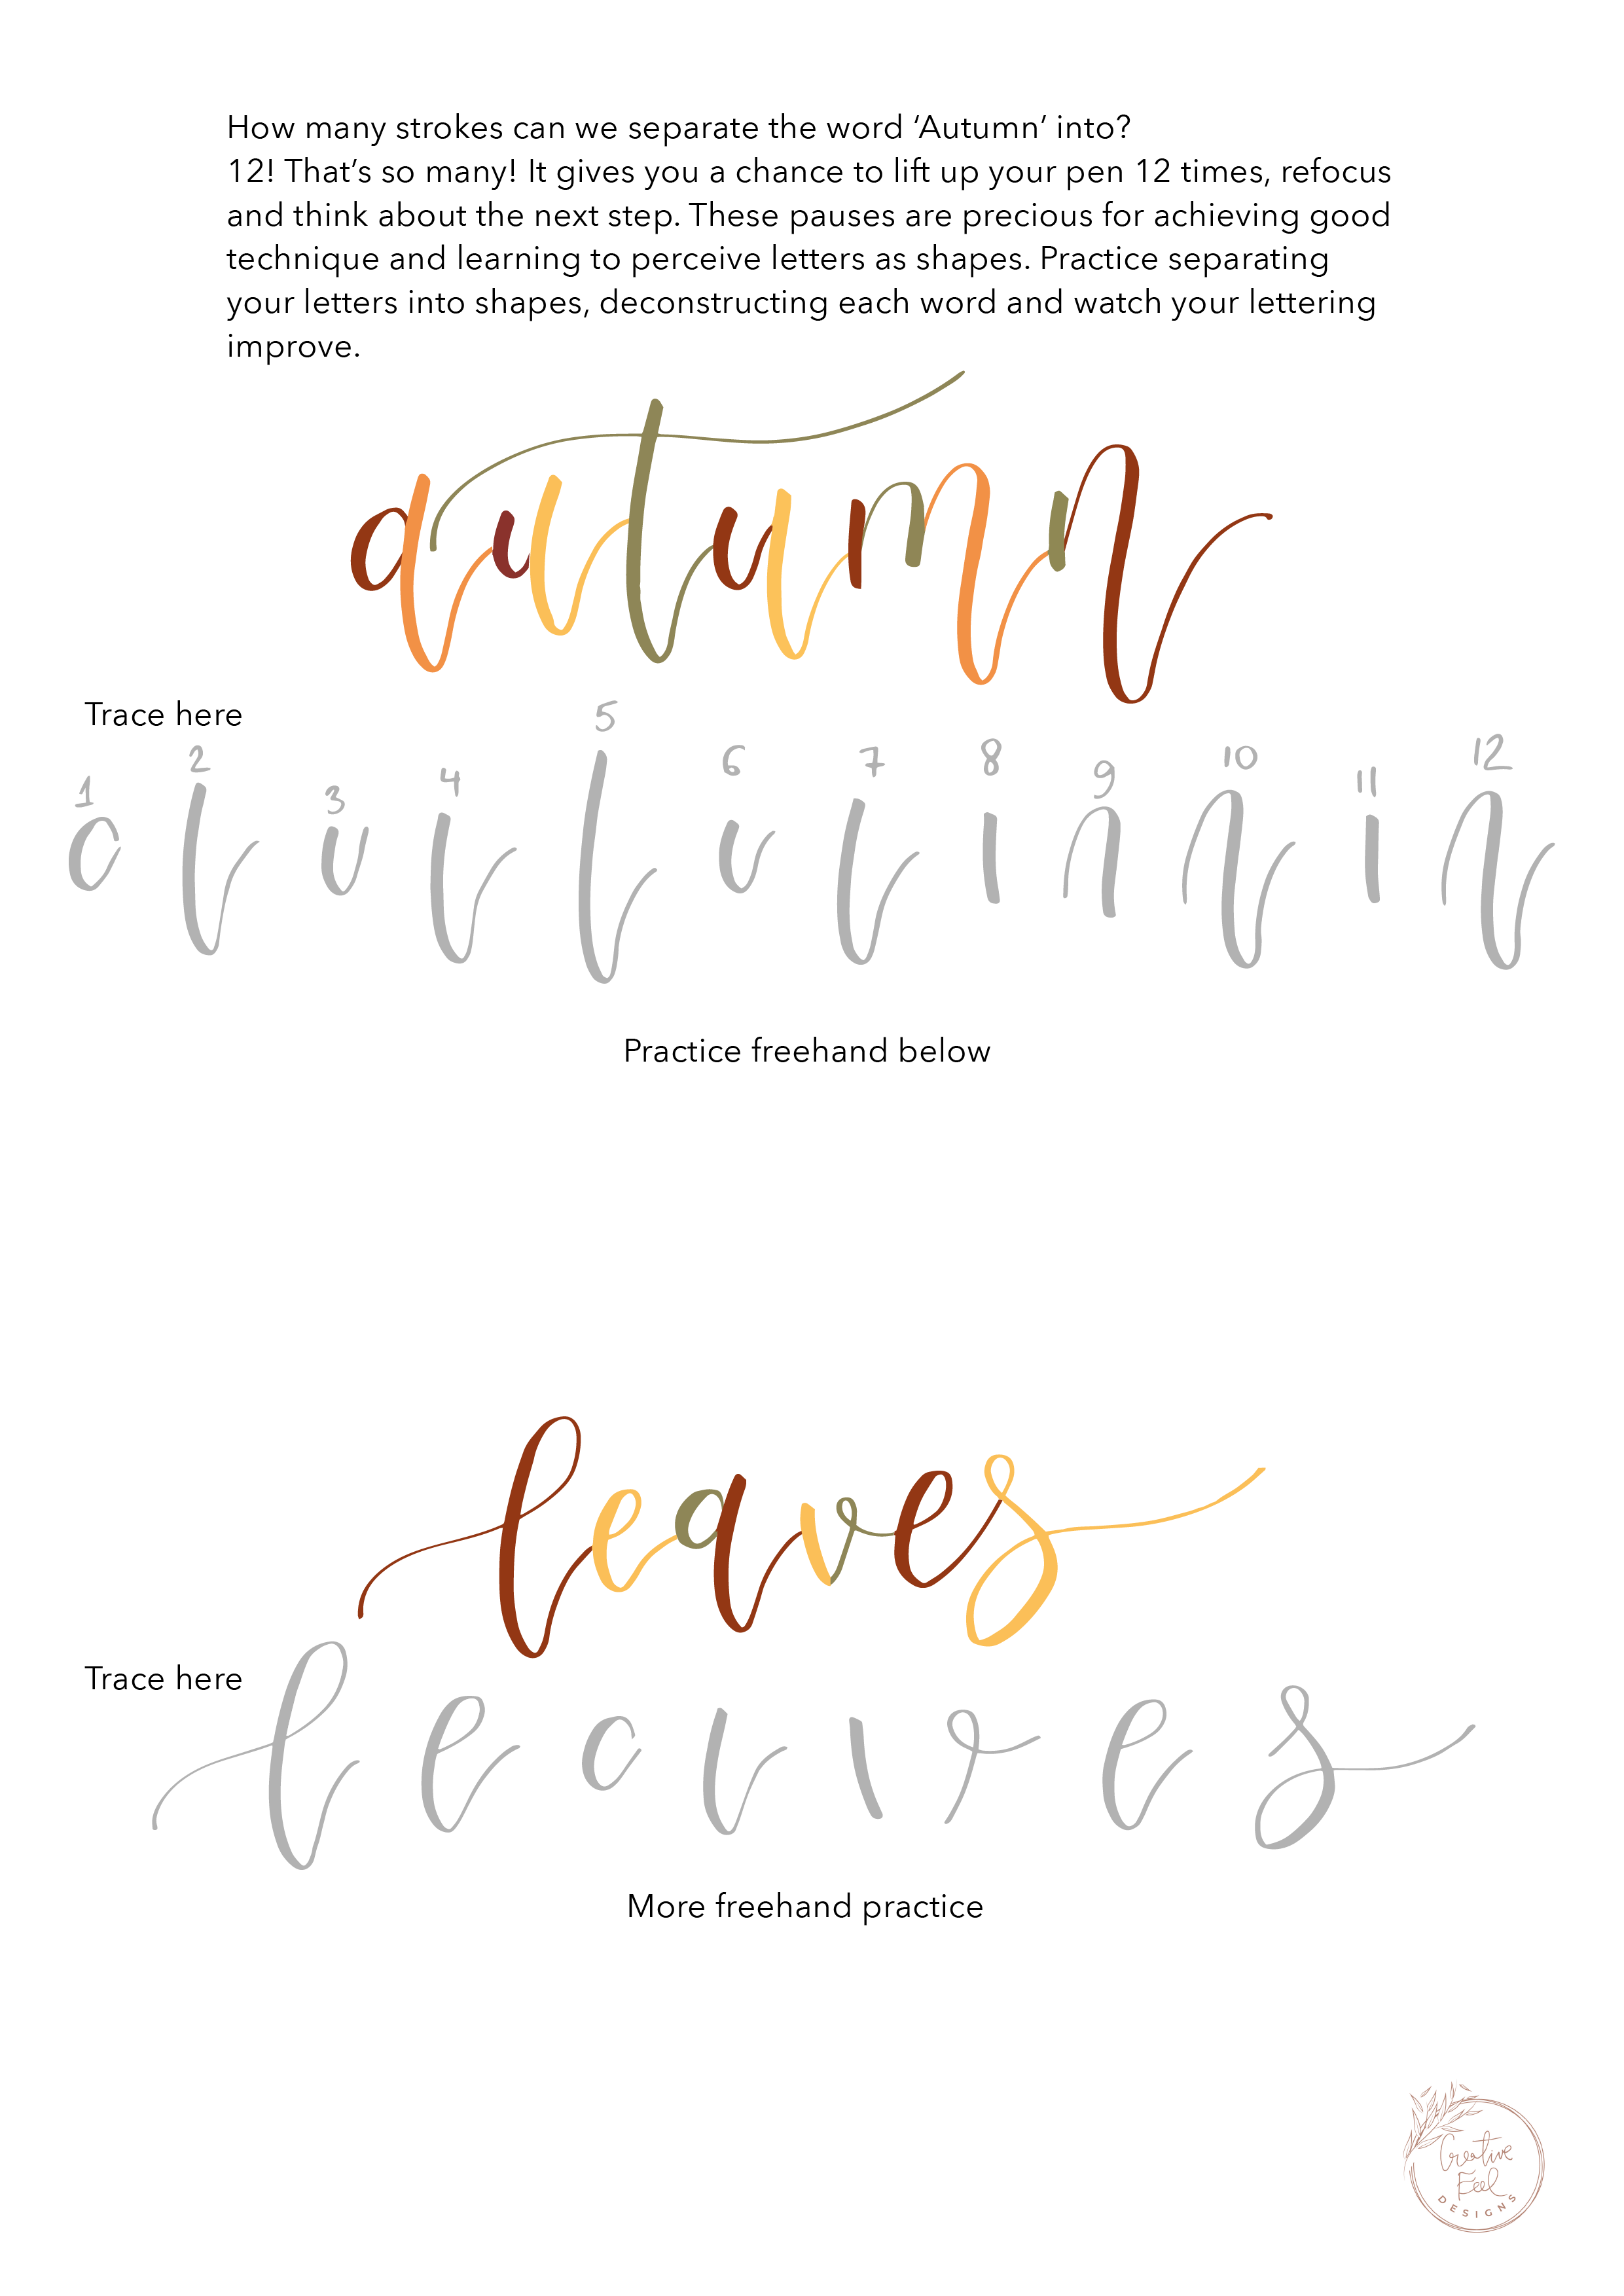 How many strokes can we separate the word ‘Autumn’ into?
12! That’s so many! It gives you a chance to lift up your pen 12 times, refocus
and think about the next step. These pauses are precious for achieving good
technique and learning to perceive letters as shapes. Practice separating
your letters into shapes, deconstructing each word and watch your lettering
improve.
autumn
Trace here
1 2 3 4 5 6 7 8 9 10 11 12
Practice freehand below
leaves
Trace here
leaves
More freehand practice
Creative
Feel
DESIGNS